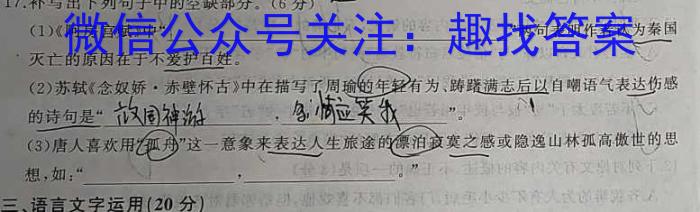 17.补写出下列句子中的空缺部分。(6分)
(1)《阿房宫赋》中“
”两句表明作者认为秦国
微信公众号关注：趣找答案
灭亡的原因在于不爱护百姓。
(2)苏轼《念奴娇·赤壁怀古》中在描写了周瑜的年轻有为、踌躇满志后以自嘲语气表达伤感
的诗句是“故国神游，多情应笑我”。
(3)唐人喜欢用“孤舟”这一意象来表达人生旅途的漂泊寂寞之感或隐逸山林孤高傲世的思
想，如：“，。”
三、语言文字运用(20分)